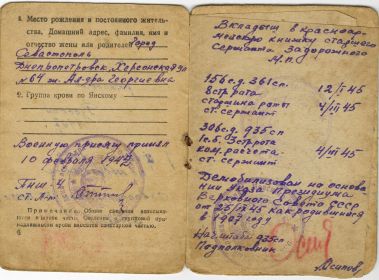 8. Место рождения и постоянного жительства. Домашний адрес, фамилия, имя и
отчество жены или родителей город
Севастополь
Днепропетровск, Херсонская ул
№ 64 ж. Ал-дра Георгиевна
9. Группа крови по Янскому
Военную присягу принял
10 февраля 1944
ПНШ-4
ст. л-т
Примечание. Общие сведения
6
Вкладыш в красноар-
мейскую книжку старшего
сержанта Задорожного
М.П.
156 с.д. 361 сп.
8 стр. рота 12/I 45
старшина роты 4/III 45
ст. сержант
306 с.д. 935 сп
1 с.б. 3 стр рота
ком. расчета 4/III 45
ст. сержант
Демобилизован на основа-
нии Указа Президиума
Верховного Совета СССР
от 25/IX 45 как родившийся
в 1907 году
Нач штаба 935 сп
Подполковник
Осипов